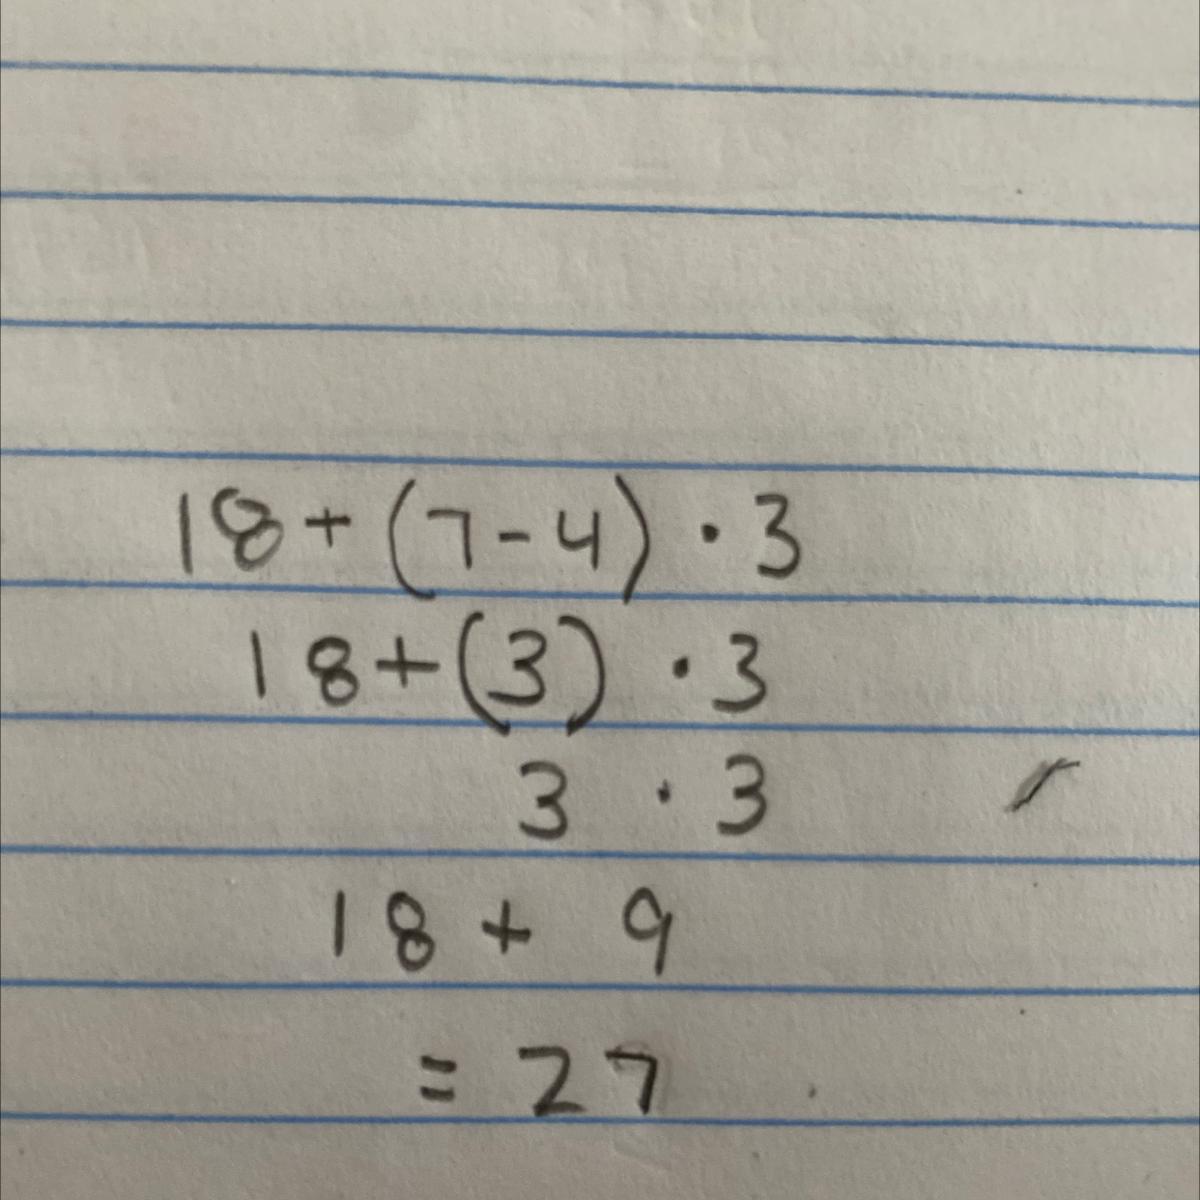 18 + (7 - 4) · 3
18 + (3) · 3
3 · 3
18 + 9
= 27